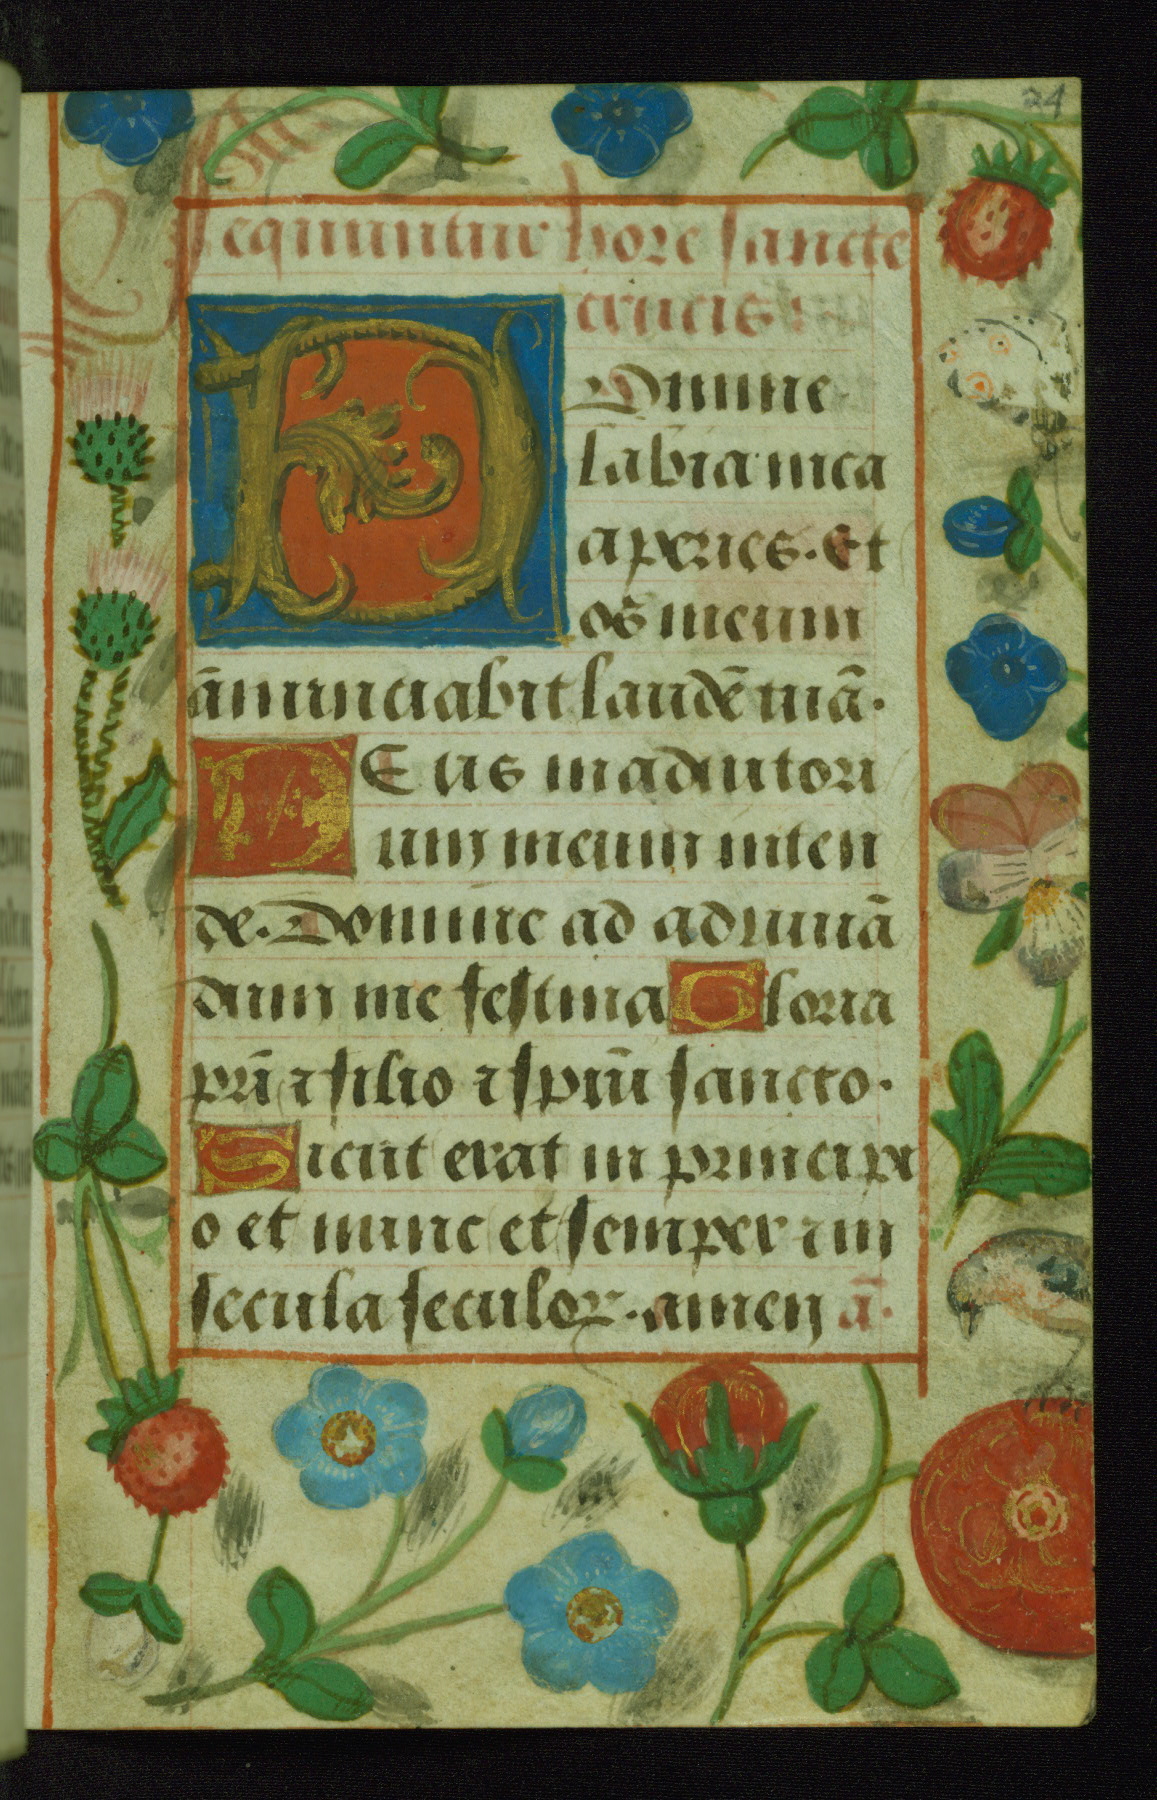 24
Sequuntur hore sancte
crucis.
D Domine
labia mea
aperies. Et
os meum
ānunciabit laudē tuā.
DEus in adiutori
um meum inten
de. Domine ad adiuuā
dum me festina Gloria
pr̄i ⁊ filio ⁊ spiūi sancto.
Sicut erat in principi
o et nunc et semper ⁊ in
secula seculoꝝ. amen ā.